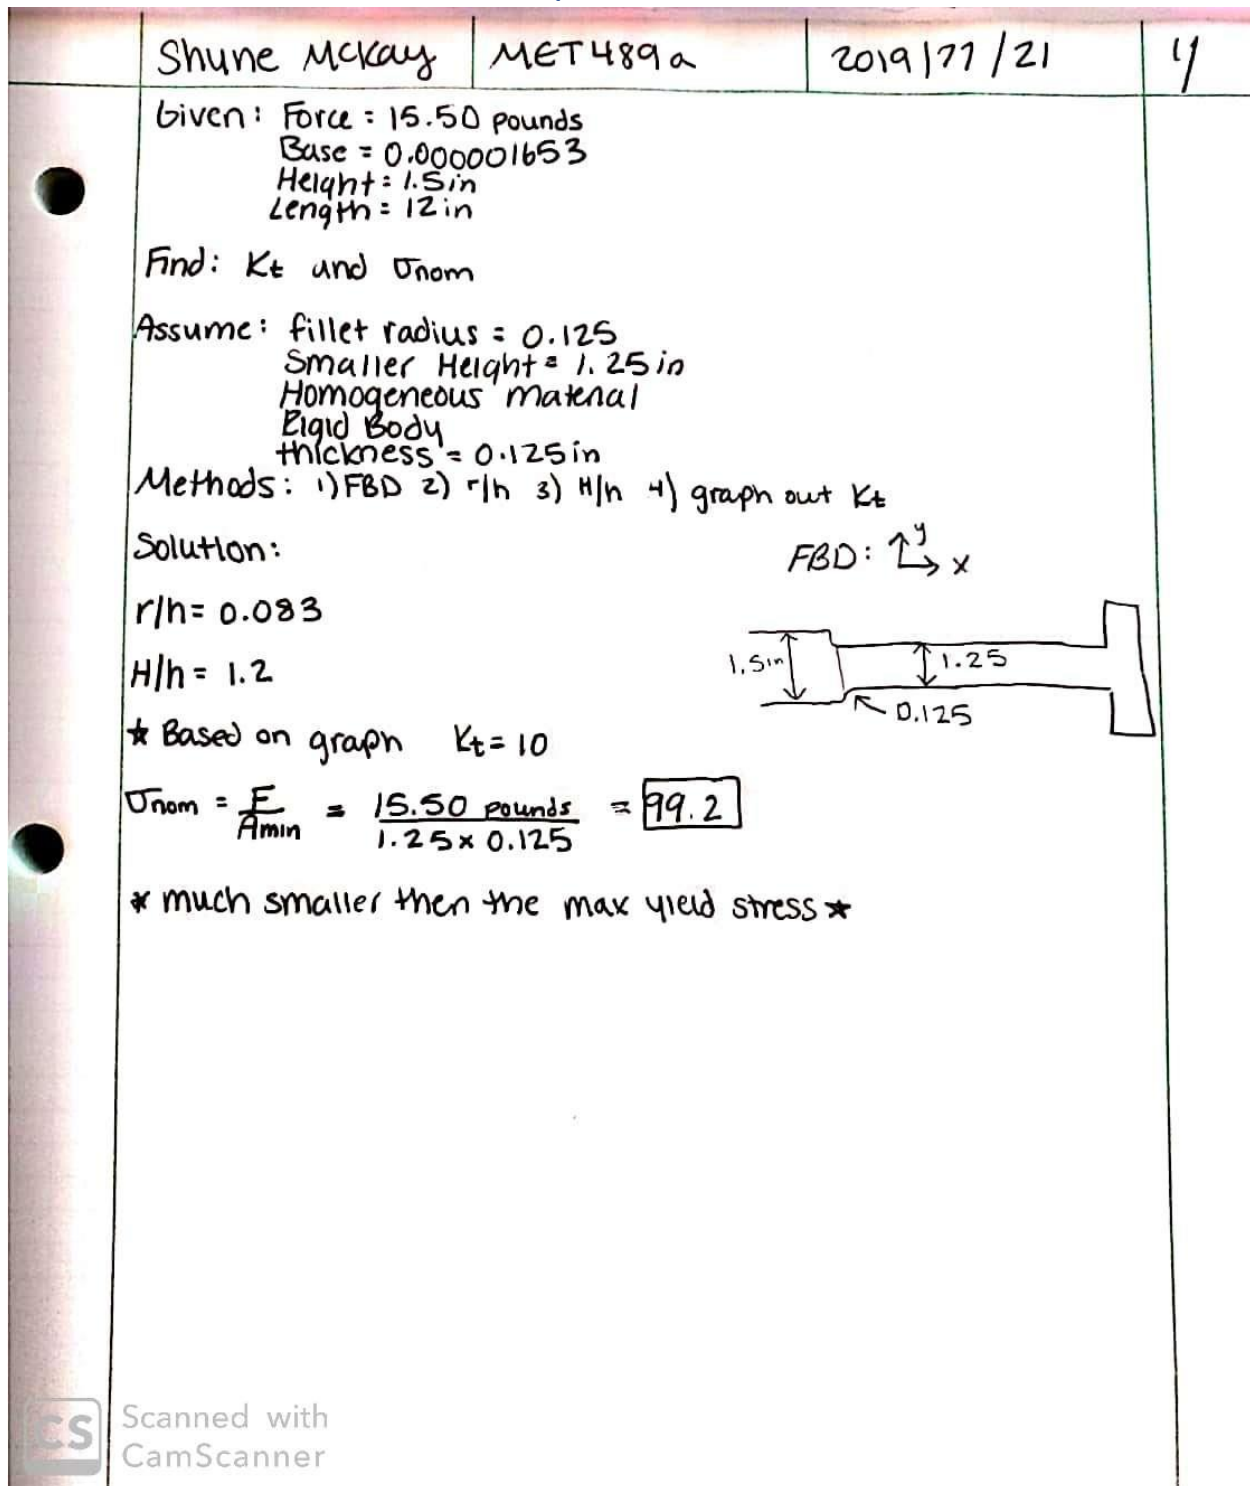 Shune McKay MET489a 2019/11/21 4/
Given: Force = 15.50 pounds
Base = 0.000001653
Height = 1.5in
Length = 12in
Find: Kt and σnom
Assume: fillet radius = 0.125
Smaller Height = 1.25in
Homogeneous material
Rigid Body
thickness = 0.125in
Methods: 1) FBD 2) r/h 3) H/h 4) graph out Kt
Solution:
FBD: y x
r/h = 0.083
1.5in 1.25
H/h = 1.2
0.125
* Based on graph Kt = 10
σnom = F/Amin = 15.50 pounds/1.25 x 0.125 = 99.2
* much smaller then the max yield stress *
CS Scanned with
CamScanner